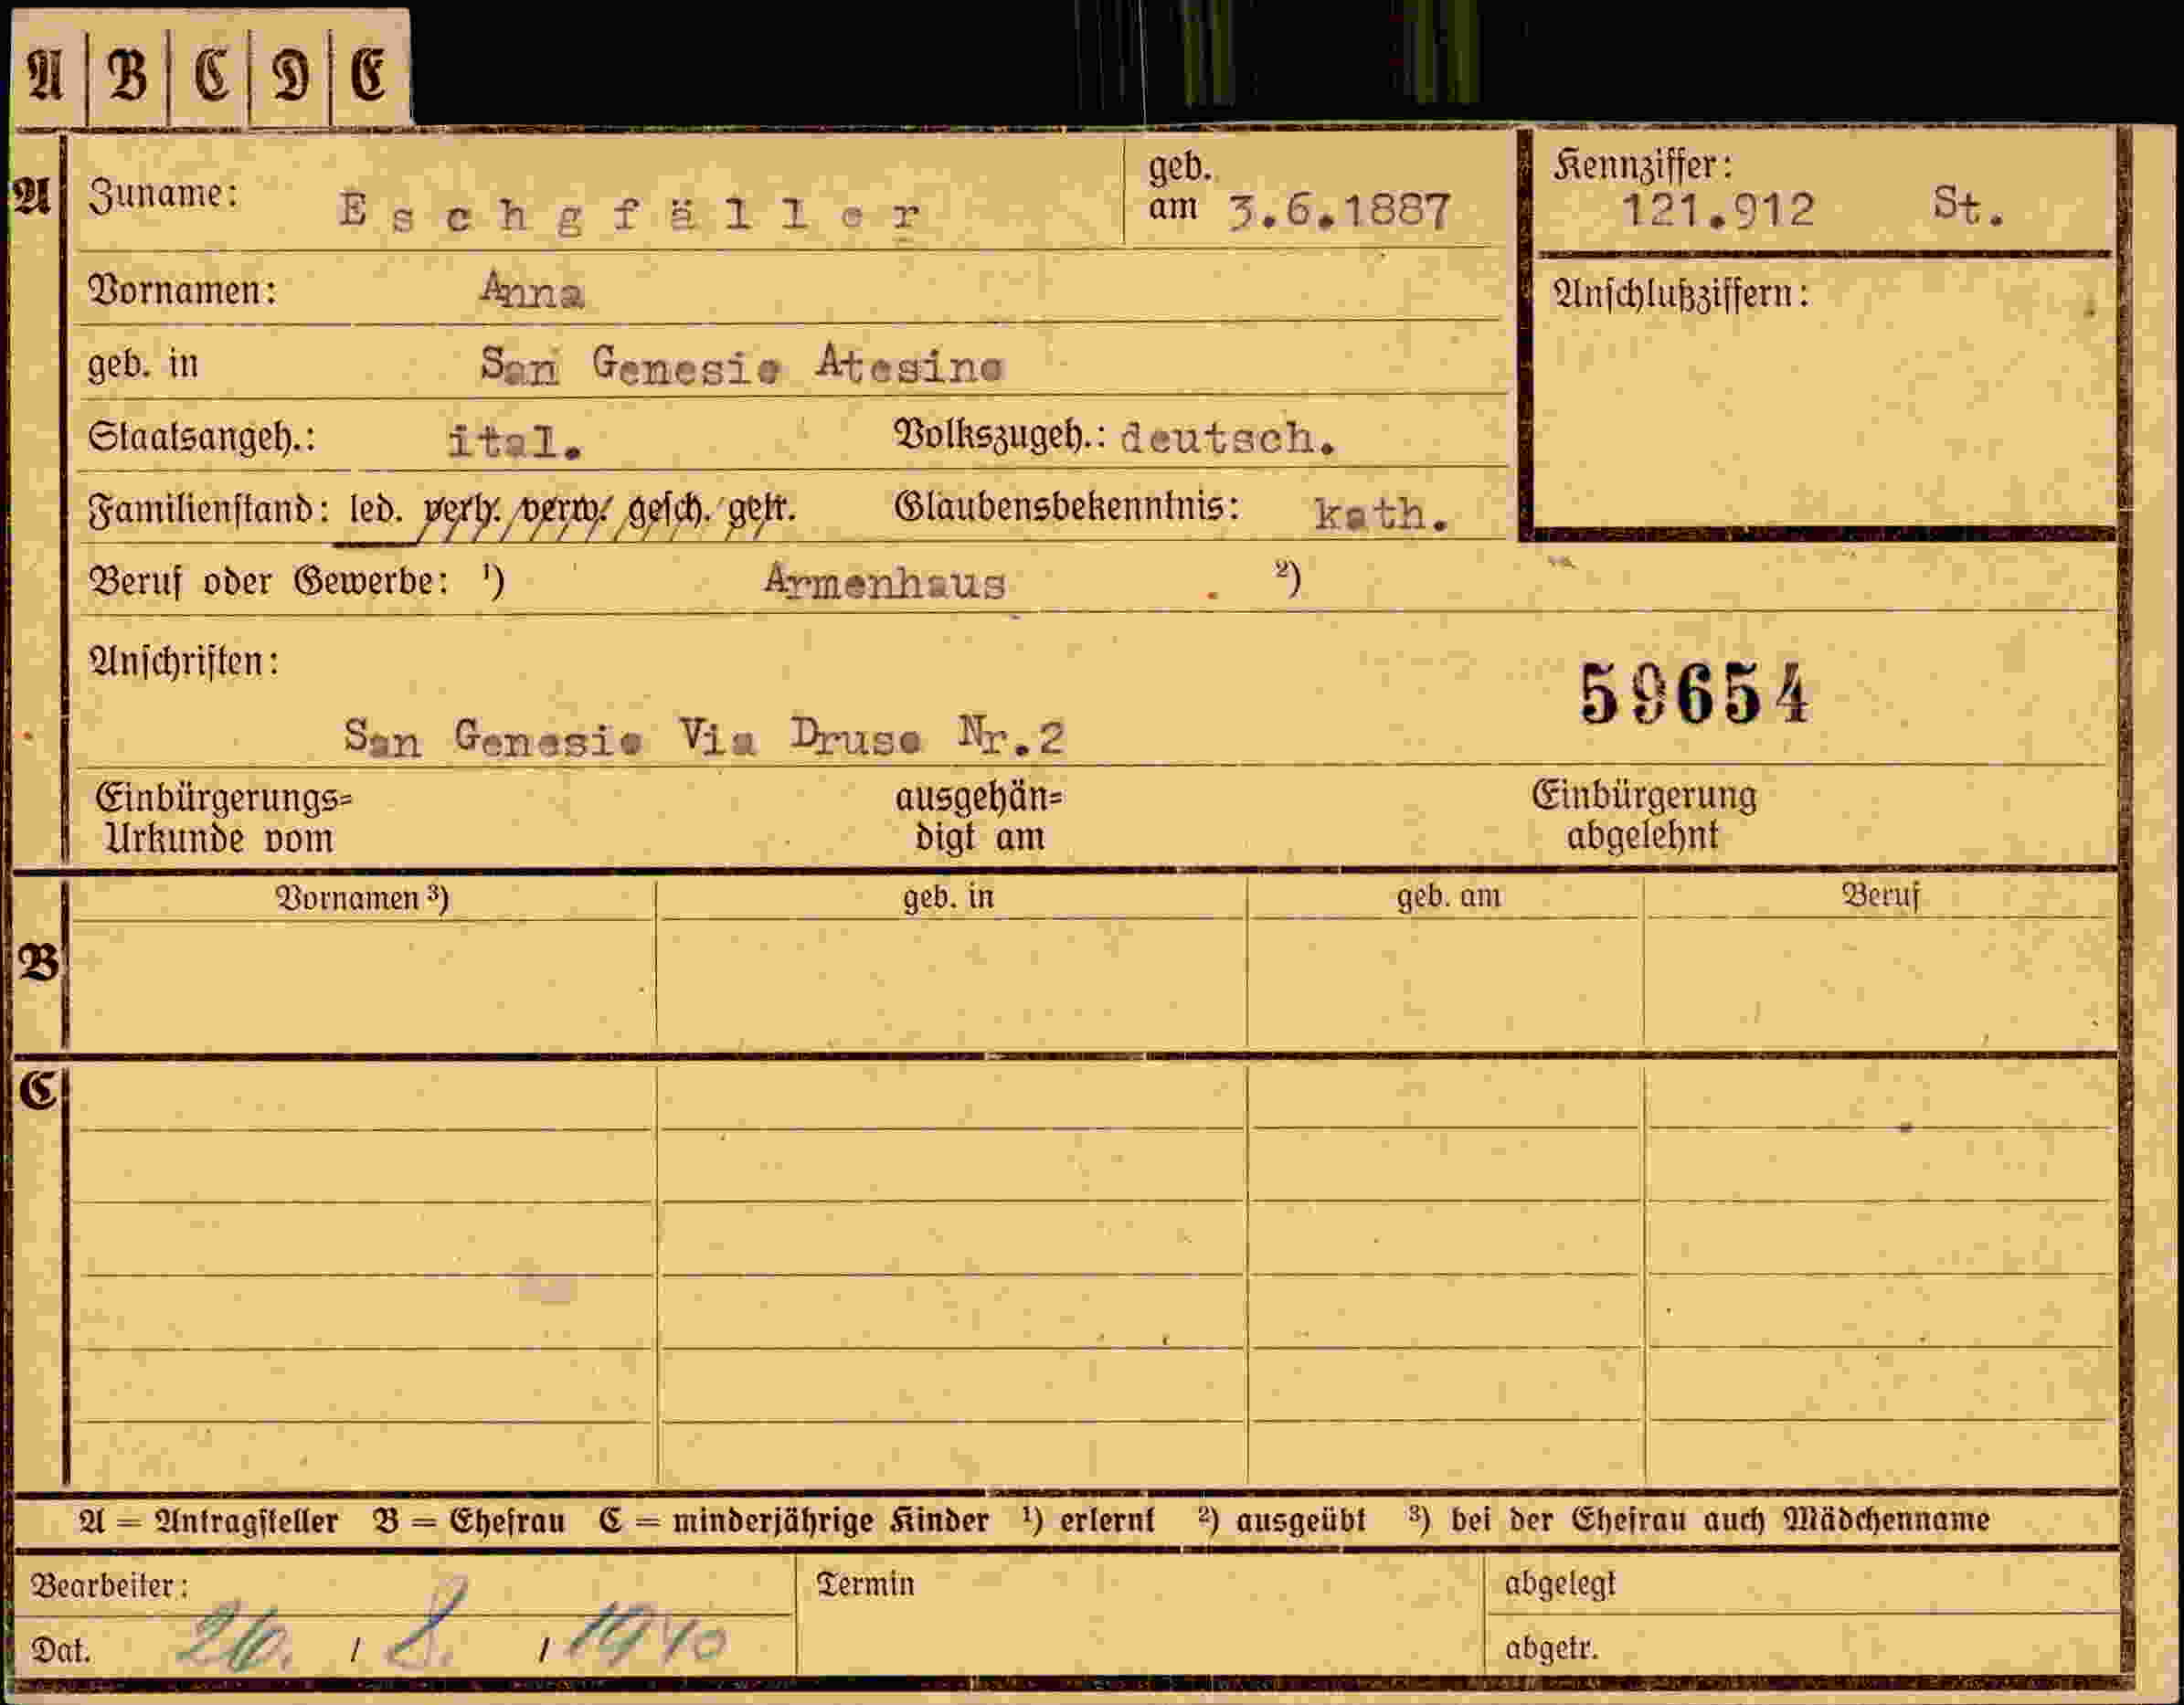 A | B | C | D | E
A Zuname: Eschgfäller geb. am 3.6.1887
Kennziffer: 121.912 St.
Vornamen: Anna
Anschlußziffern:
geb. in San Genesio Atesino
Staatsangeh.: ital. Volkszugeh.: deutsch.
Familienstand: led. verh. verw. gesch. getr. Glaubensbekenntnis: kath.
Beruf oder Gewerbe: ¹) Armenhaus ²)
Anschriften:
59654
San Genesio Via Druso Nr.2
Einbürgerungs=
Urkunde vom
ausgehän=
digt am
Einbürgerung
abgelehnt
Vornamen ³) geb. in geb. am Beruf
B
C
A = Antragsteller B = Ehefrau C = minderjährige Kinder ¹) erlernt ²) ausgeübt ³) bei der Ehefrau auch Mädchenname
Bearbeiter: Termin abgelegt
Dat. 26. / 8. / 1940 abgetr.